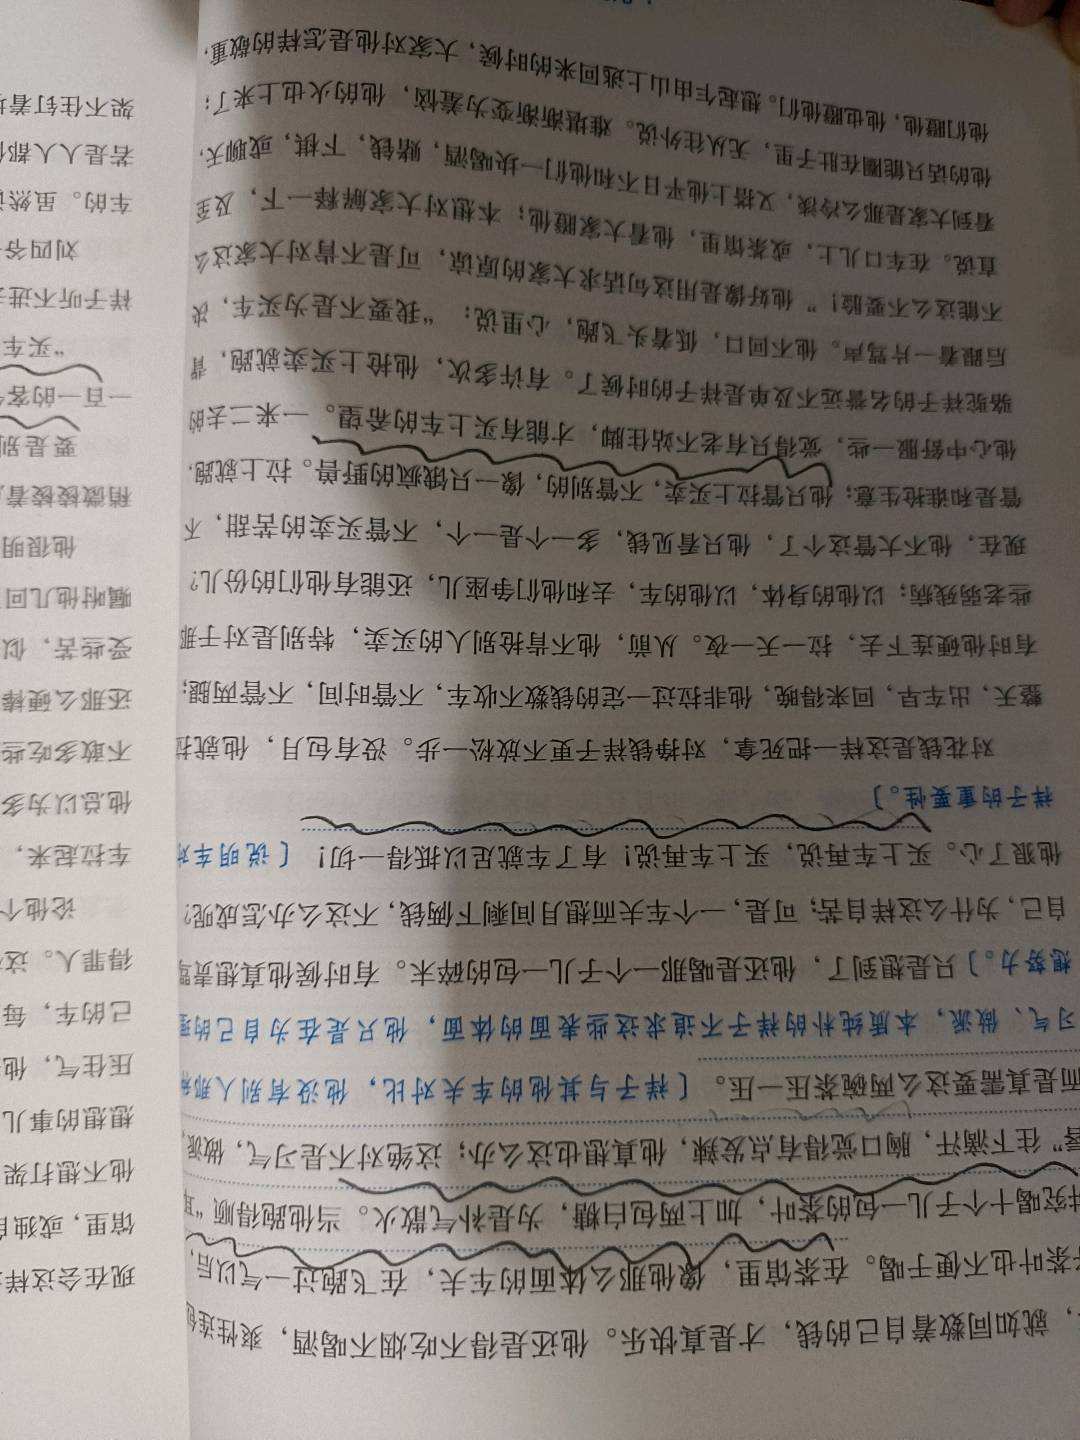 ，就如同数着自己的钱，才是真快乐。他还是得不吃烟不喝酒，爽性连
茶叶也不便于喝。在茶馆里，像他那么体面的车夫，在飞跑过一气以后，
究喝十个子儿一包的茶叶，加上两包白糖，为是补气散火。当他跑得顺“耳
唇”往下滴汗，胸口觉得有点发辣，他真想也这么办；这绝对不是习气，做派，
而是真需要这么两碗茶压一压。〔祥子与其他的车夫对比，他没有别人那种
习气、做派，本质纯朴的祥子不追求这些表面的体面，他只是在为自己的理
想努力。〕只是想到了，他还是喝那一个子儿一包的碎末。有时候他真想责骂
自己，为什么这样自苦；可是，一个车夫而想月间剩下俩钱，不这么办怎成呢？
他狠了心。买上车再说，买上车再说！有了车就足以抵得一切！〔说明车对
祥子的重要性。〕
对花钱是这样一把死拿，对挣钱祥子更不放松一步。没有包月，他就拉
整天，出车早，回来得晚，他非拉过一定的钱数不收车，不管时间，不管两腿；
有时他硬连下去，拉一天一夜。从前，他不肯抢别人的买卖，特别是对于那
些老弱残病；以他的身体，以他的车，去和他们争座儿，还能有他们的份儿？
现在，他不大管这个了，他只看见钱，多一个是一个，不管买卖的苦甜，不
管是和谁抢生意；他只管拉上买卖，不管别的，像一只饿疯的野兽。拉上就跑，
他心中舒服一些，觉得只有老不站住脚，才能有买上车的希望。一来二去的
骆驼祥子的名誉远不及单是祥子的时候了。有许多次，他抢上买卖就跑，背
后跟着一片骂声。他不回口，低着头飞跑，心里说：“我要不是为买车，决
不能这么不要脸！”他好像是用这句话求大家的原谅，可是不肯对大家这么
直说。在车口儿上，或茶馆里，他看大家瞪他；本想对大家解释一下，及至
看到大家是那么冷淡，又搭上他平日不和他们一块喝酒，赌钱，下棋，或聊天，
他的话只能圈在肚子里，无从往外说。难堪渐渐变为羞恼，他的火也上来了；
他们瞪他，他也瞪他们。想起乍由山上逃回来的时候，大家对他是怎样的敬重，
现在会这样
馆里，或独自
他不想打架
想想的事儿
压住气，他
己的车，每
得罪人。这
论他个
车拉起来，
他总以为多
不敢多吃些
还那么硬棒
受些苦，似
嘱咐他几回
他很明
稍微棱棱着
要是别
一百一的客
“买车
祥子听不进去
刘四爷
车的。虽然
若是人人都
架不住钉着